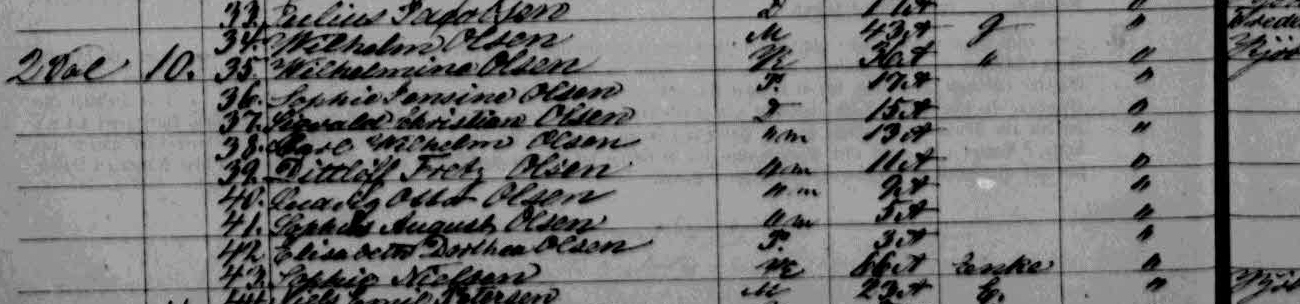 33. Julius Jacobsen D
34. Wilhelm Olsen M 43 A g "
2 Sal 10. 35. Wilhelmine Olsen K 36 A " "
36. Sophie Jensine Olsen P. 17 A "
37. Christian Olsen D 15 A "
38. Carl Wilhelm Olsen " m 13 A "
39. Dittlöff Fretz Olsen " m 11 A "
40. Ludvig Otto Olsen " m 9 A "
41. Sophus August Olsen " m 5 A "
42. Elisabeth Dorthea Olsen P. 3 A "
43. Sophie Nielsen K 66 A Enke "
44. Niels Petersen M 23 A E.